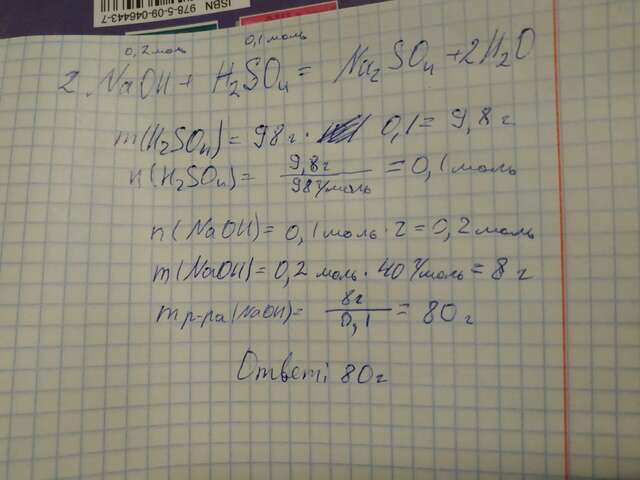 ISBN 978-5-09-046443-7
0,2 моль 0,1 моль
2 NaOH + H₂SO₄ = Na₂SO₄ + 2H₂O
m(H₂SO₄) = 98 г · 0,1 = 9,8 г
n(H₂SO₄) = 9,8 г / 98 г/моль = 0,1 моль
n(NaOH) = 0,1 моль · 2 = 0,2 моль
m(NaOH) = 0,2 моль · 40 г/моль = 8 г
m р-ра (NaOH) = 8г / 0,1 = 80 г
Ответ: 80 г